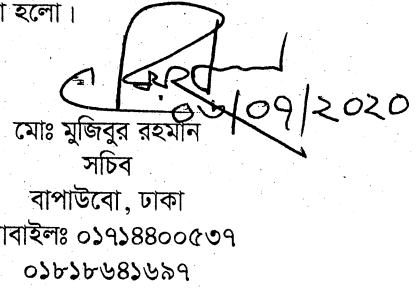 হলো।
/০৭/২০২০
মোঃ মুজিবুর রহমান
সচিব
বাপাউবো, ঢাকা
াবাইলঃ ০১৭১৪৪০০৫৩৭
০১৮১৮৬৪১৬৯৭